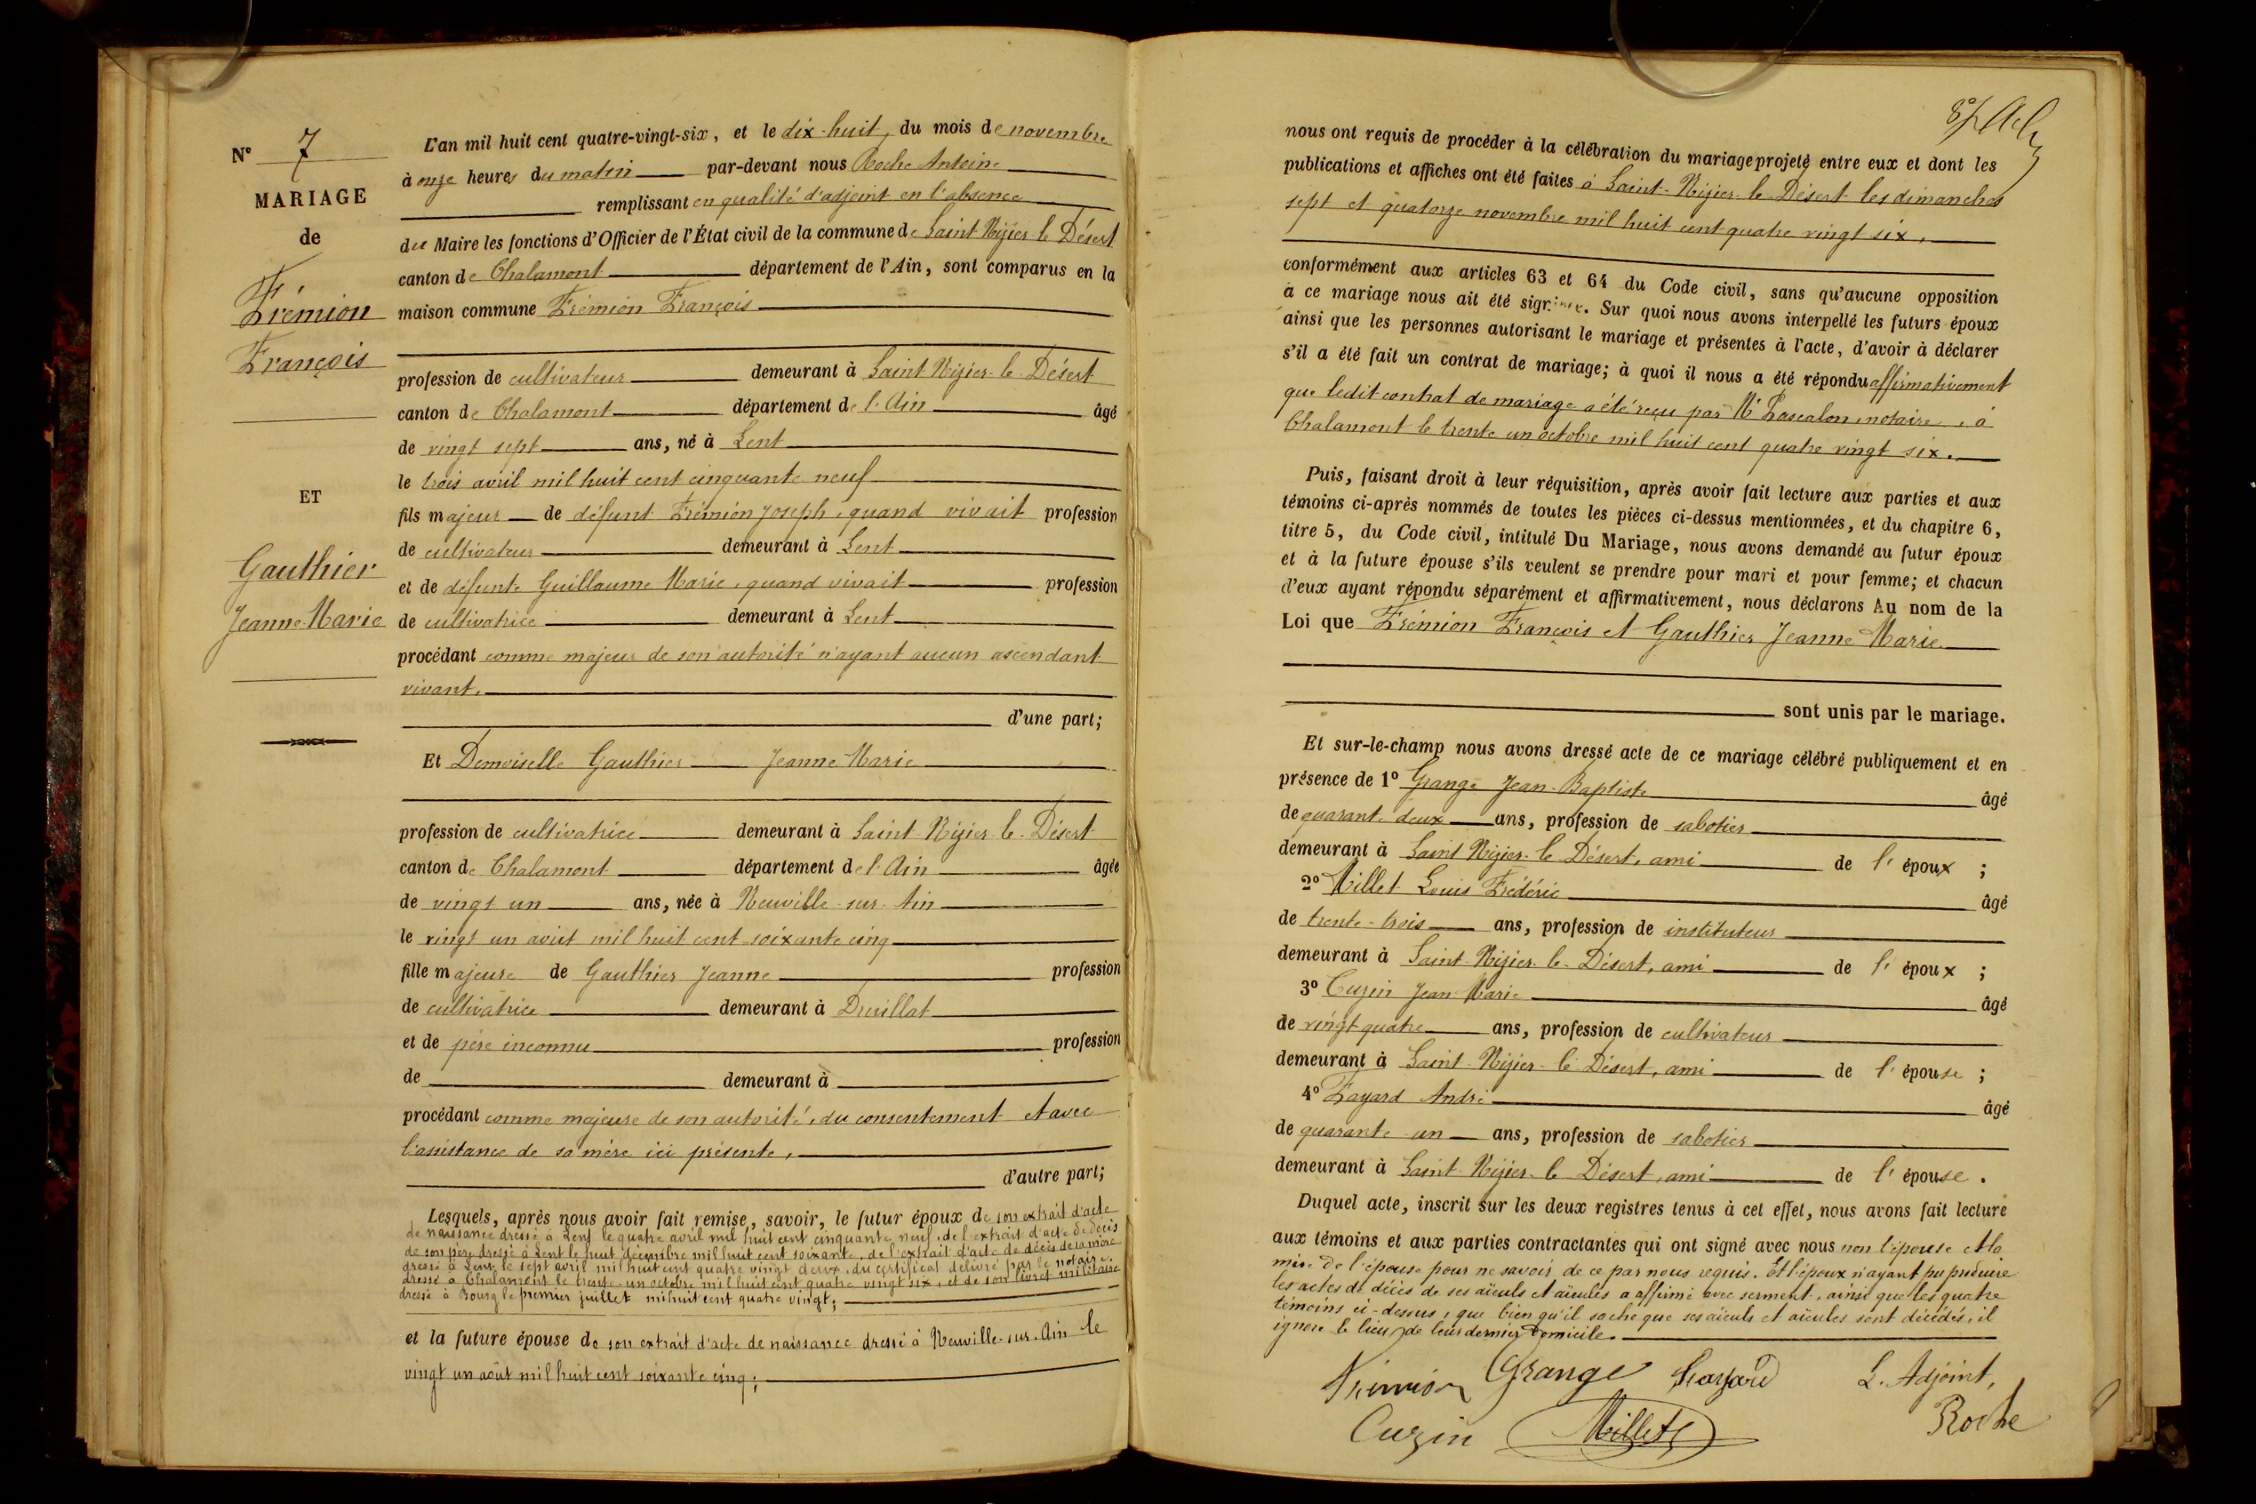 N° 7
MARIAGE
de
Frémion
François
ET
Gauthier
Jeanne-Marie
L'an mil huit cent quatre-vingt-six, et le dix-huit, du mois de novembre
à onze heures du matin par-devant nous Roche Antoine
remplissant en qualité d'adjoint en l'absence
du Maire les fonctions d'Officier de l'État civil de la commune de Saint Nizier le Désert
canton de Chalamont département de l'Ain, sont comparus en la
maison commune Frémion François
profession de cultivateur demeurant à Saint Nizier le Désert
canton de Chalamont département de l'Ain âgé
de vingt sept ans, né à Lent
le trois avril mil huit cent cinquante neuf
fils majeur de défunt Frémion Joseph, quand vivait profession
de cultivateur demeurant à Lent
et de défunte Guillaume Marie, quand vivait profession
de cultivatrice demeurant à Lent
procédant comme majeur de son autorité n'ayant aucun ascendant
vivant.
d'une part;
Et Demoiselle Gauthier Jeanne Marie
profession de cultivatrice demeurant à Saint Nizier le Désert
canton de Chalamont département de l'Ain âgée
de vingt un ans, née à Neuville-sur-Ain
le vingt un août mil huit cent soixante cinq
fille majeure de Gauthier Jeanne profession
de cultivatrice demeurant à Druillat
et de père inconnu profession
de demeurant à
procédant comme majeure de son autorité, du consentement et avec
l'assistance de sa mère ici présente,
d'autre part;
Lesquels, après nous avoir fait remise, savoir, le futur époux de son extrait d'acte
de naissance dressé à Lent le quatre avril mil huit cent cinquante neuf, de l'extrait d'acte de décès
de son père dressé à Lent le huit décembre mil huit cent soixante, de l'extrait d'acte de décès de sa mère
dressé à Lent le sept avril mil huit cent quatre vingt deux, du certificat délivré par le notaire
dressé à Chalamont le trente-un octobre mil huit cent quatre vingt six, et de son livret militaire
dressé à Bourg le premier juillet mil huit cent quatre vingt;
et la future épouse de son extrait d'acte de naissance dressé à Neuville-sur-Ain le
vingt un août mil huit cent soixante cinq;
nous ont requis de procéder à la célébration du mariage projeté entre eux et dont les
publications et affiches ont été faites à Saint-Nizier-le-Désert les dimanches
sept et quatorze novembre mil huit cent quatre vingt six,
conformément aux articles 63 et 64 du Code civil, sans qu'aucune opposition
à ce mariage nous ait été signifiée. Sur quoi nous avons interpellé les futurs époux
ainsi que les personnes autorisant le mariage et présentes à l'acte, d'avoir à déclarer
s'il a été fait un contrat de mariage; à quoi il nous a été répondu affirmativement
que ledit contrat de mariage a été reçu par Me notaire, à
Chalamont le trente un octobre mil huit cent quatre vingt six.
Puis, faisant droit à leur réquisition, après avoir fait lecture aux parties et aux
témoins ci-après nommés de toutes les pièces ci-dessus mentionnées, et du chapitre 6,
titre 5, du Code civil, intitulé Du Mariage, nous avons demandé au futur époux
et à la future épouse s'ils veulent se prendre pour mari et pour femme; et chacun
d'eux ayant répondu séparément et affirmativement, nous déclarons Au nom de la
Loi que Frémion François et Gauthier Jeanne Marie
sont unis par le mariage.
Et sur-le-champ nous avons dressé acte de ce mariage célébré publiquement et en
présence de 1° Grange Jean-Baptiste âgé
de quarante deux ans, profession de sabotier
demeurant à Saint Nizier le Désert, ami de l'époux ;
2° Millet Louis Frédéric âgé
de trente-trois ans, profession de instituteur
demeurant à Saint Nizier le Désert, ami de l'époux ;
3° Cuzin Jean Marie âgé
de vingt quatre ans, profession de cultivateur
demeurant à Saint-Nizier-le-Désert, ami de l'épouse ;
4° Fayard André âgé
de quarante-un ans, profession de sabotier
demeurant à Saint-Nizier-le-Désert, ami de l'épouse.
Duquel acte, inscrit sur les deux registres tenus à cet effet, nous avons fait lecture
aux témoins et aux parties contractantes qui ont signé avec nous non l'épouse et la
mère de l'épouse pour ne savoir de ce par nous requis. Et l'époux n'ayant pu produire
les actes de décès de ses aïeuls et aïeules a affirmé avec serment, ainsi que les quatre
témoins ci-dessus, que bien qu'il sache que ses aïeuls et aïeules sont décédés, il
ignore le lieu de leur dernier domicile.
Frémion Grange Fayard L'Adjoint,
Cuzin Millet Roche